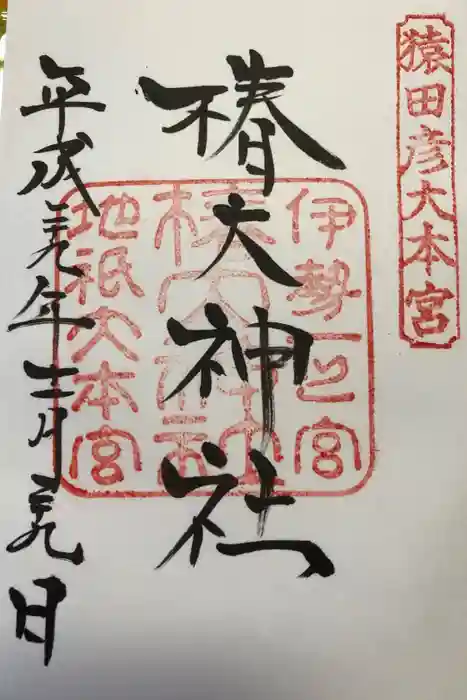 猿田彦大本宮
伊勢一之宮
椿大神社
地祇大本宮
椿大神社
平成二十九年十二月二十九日